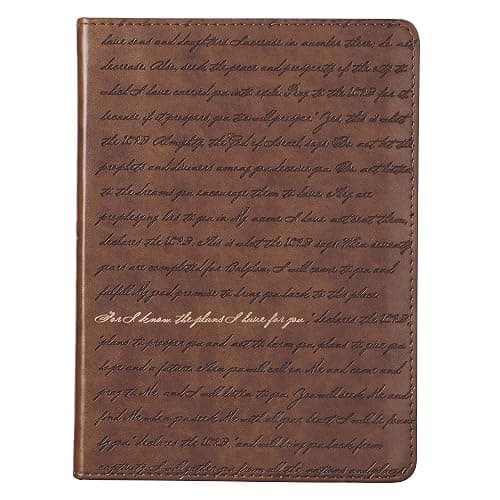 have sons and daughters Increase in number there; do not
decrease. Also, seek the peace and prosperity of the city to
which I have carried you into exile. Pray to the LORD for it
because if it prospers, you too will prosper." Yes, this is what
the LORD Almighty, the God of Israel says: Do not let the
prophets and diviners among you deceive you. Do not listen
to the dreams you encourage them to have. They are
prophesying lies to you in My name. I have not sent them,
declares the LORD. This is what the LORD says: When seventy
years are completed for Babylon, I will come to you and
fulfill My good promise to bring you back to this place.
For I know the plans I have for you," declares the LORD,
"plans to prosper you and not to harm you, plans to give you
hope and a future. Then you will call on Me and come and
pray to Me, and I will listen to you. You will seek Me and
find Me when you seek Me with all your heart. I will be found
by you," declares the LORD, "and will bring you back from
captivity. I will gather you from all the nations and places